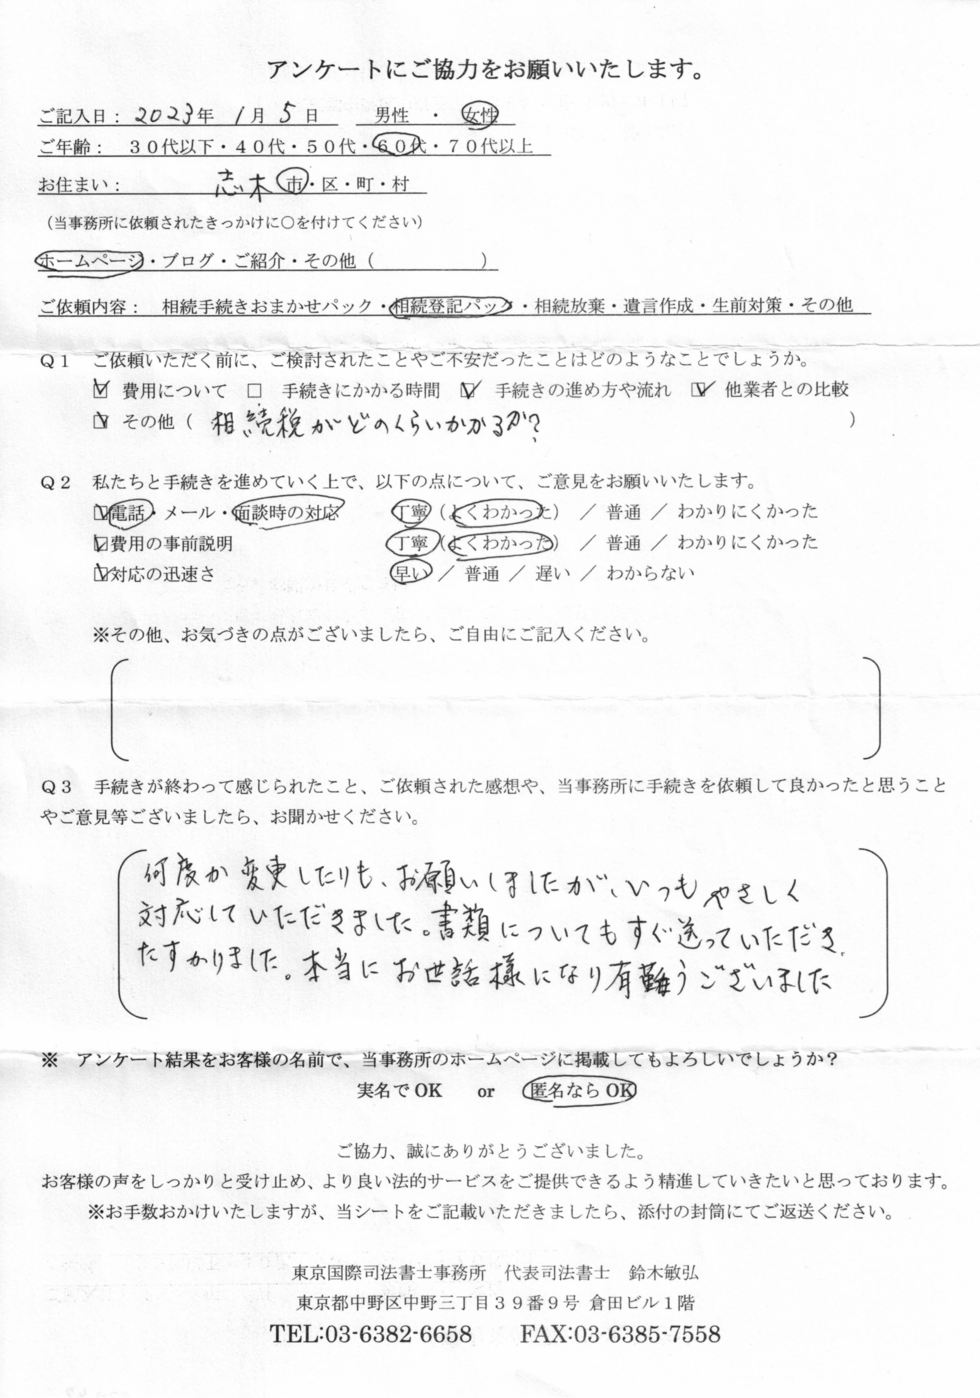 アンケートにご協力をお願いいたします。
ご記入日： 2023年 1月 5日 男性 ・ 女性
ご年齢： 30代以下・40代・50代・60代・70代以上
お住まい： 志木 市・区・町・村
（当事務所に依頼されたきっかけに○を付けてください）
ホームページ・ブログ・ご紹介・その他（ ）
ご依頼内容： 相続手続きおまかせパック・相続登記パック・相続放棄・遺言作成・生前対策・その他
Q1 ご依頼いただく前に、ご検討されたことやご不安だったことはどのようなことでしょうか。
☑ 費用について □ 手続きにかかる時間 ☑ 手続きの進め方や流れ ☑ 他業者との比較
☑ その他（ 相続税がどのくらいかかるか？ ）
Q2 私たちと手続きを進めていく上で、以下の点について、ご意見をお願いいたします。
☑電話・メール・面談時の対応 丁寧（よくわかった） ／ 普通 ／ わかりにくかった
☑費用の事前説明 丁寧（よくわかった） ／ 普通 ／ わかりにくかった
☑対応の迅速さ 早い ／ 普通 ／ 遅い ／ わからない
※その他、お気づきの点がございましたら、ご自由にご記入ください。
Q3 手続きが終わって感じられたこと、ご依頼された感想や、当事務所に手続きを依頼して良かったと思うこと
やご意見等ございましたら、お聞かせください。
何度か変更したりも、お願いしましたが、いつもやさしく
対応していただきました。書類についてもすぐ送っていただき、
たすかりました。本当にお世話様になり有難うございました
※ アンケート結果をお客様の名前で、当事務所のホームページに掲載してもよろしいでしょうか？
実名でOK or 匿名ならOK
ご協力、誠にありがとうございました。
お客様の声をしっかりと受け止め、より良い法的サービスをご提供できるよう精進していきたいと思っております。
※お手数おかけいたしますが、当シートをご記載いただきましたら、添付の封筒にてご返送ください。
東京国際司法書士事務所 代表司法書士 鈴木敏弘
東京都中野区中野三丁目39番9号 倉田ビル1階
TEL:03-6382-6658 FAX:03-6385-7558